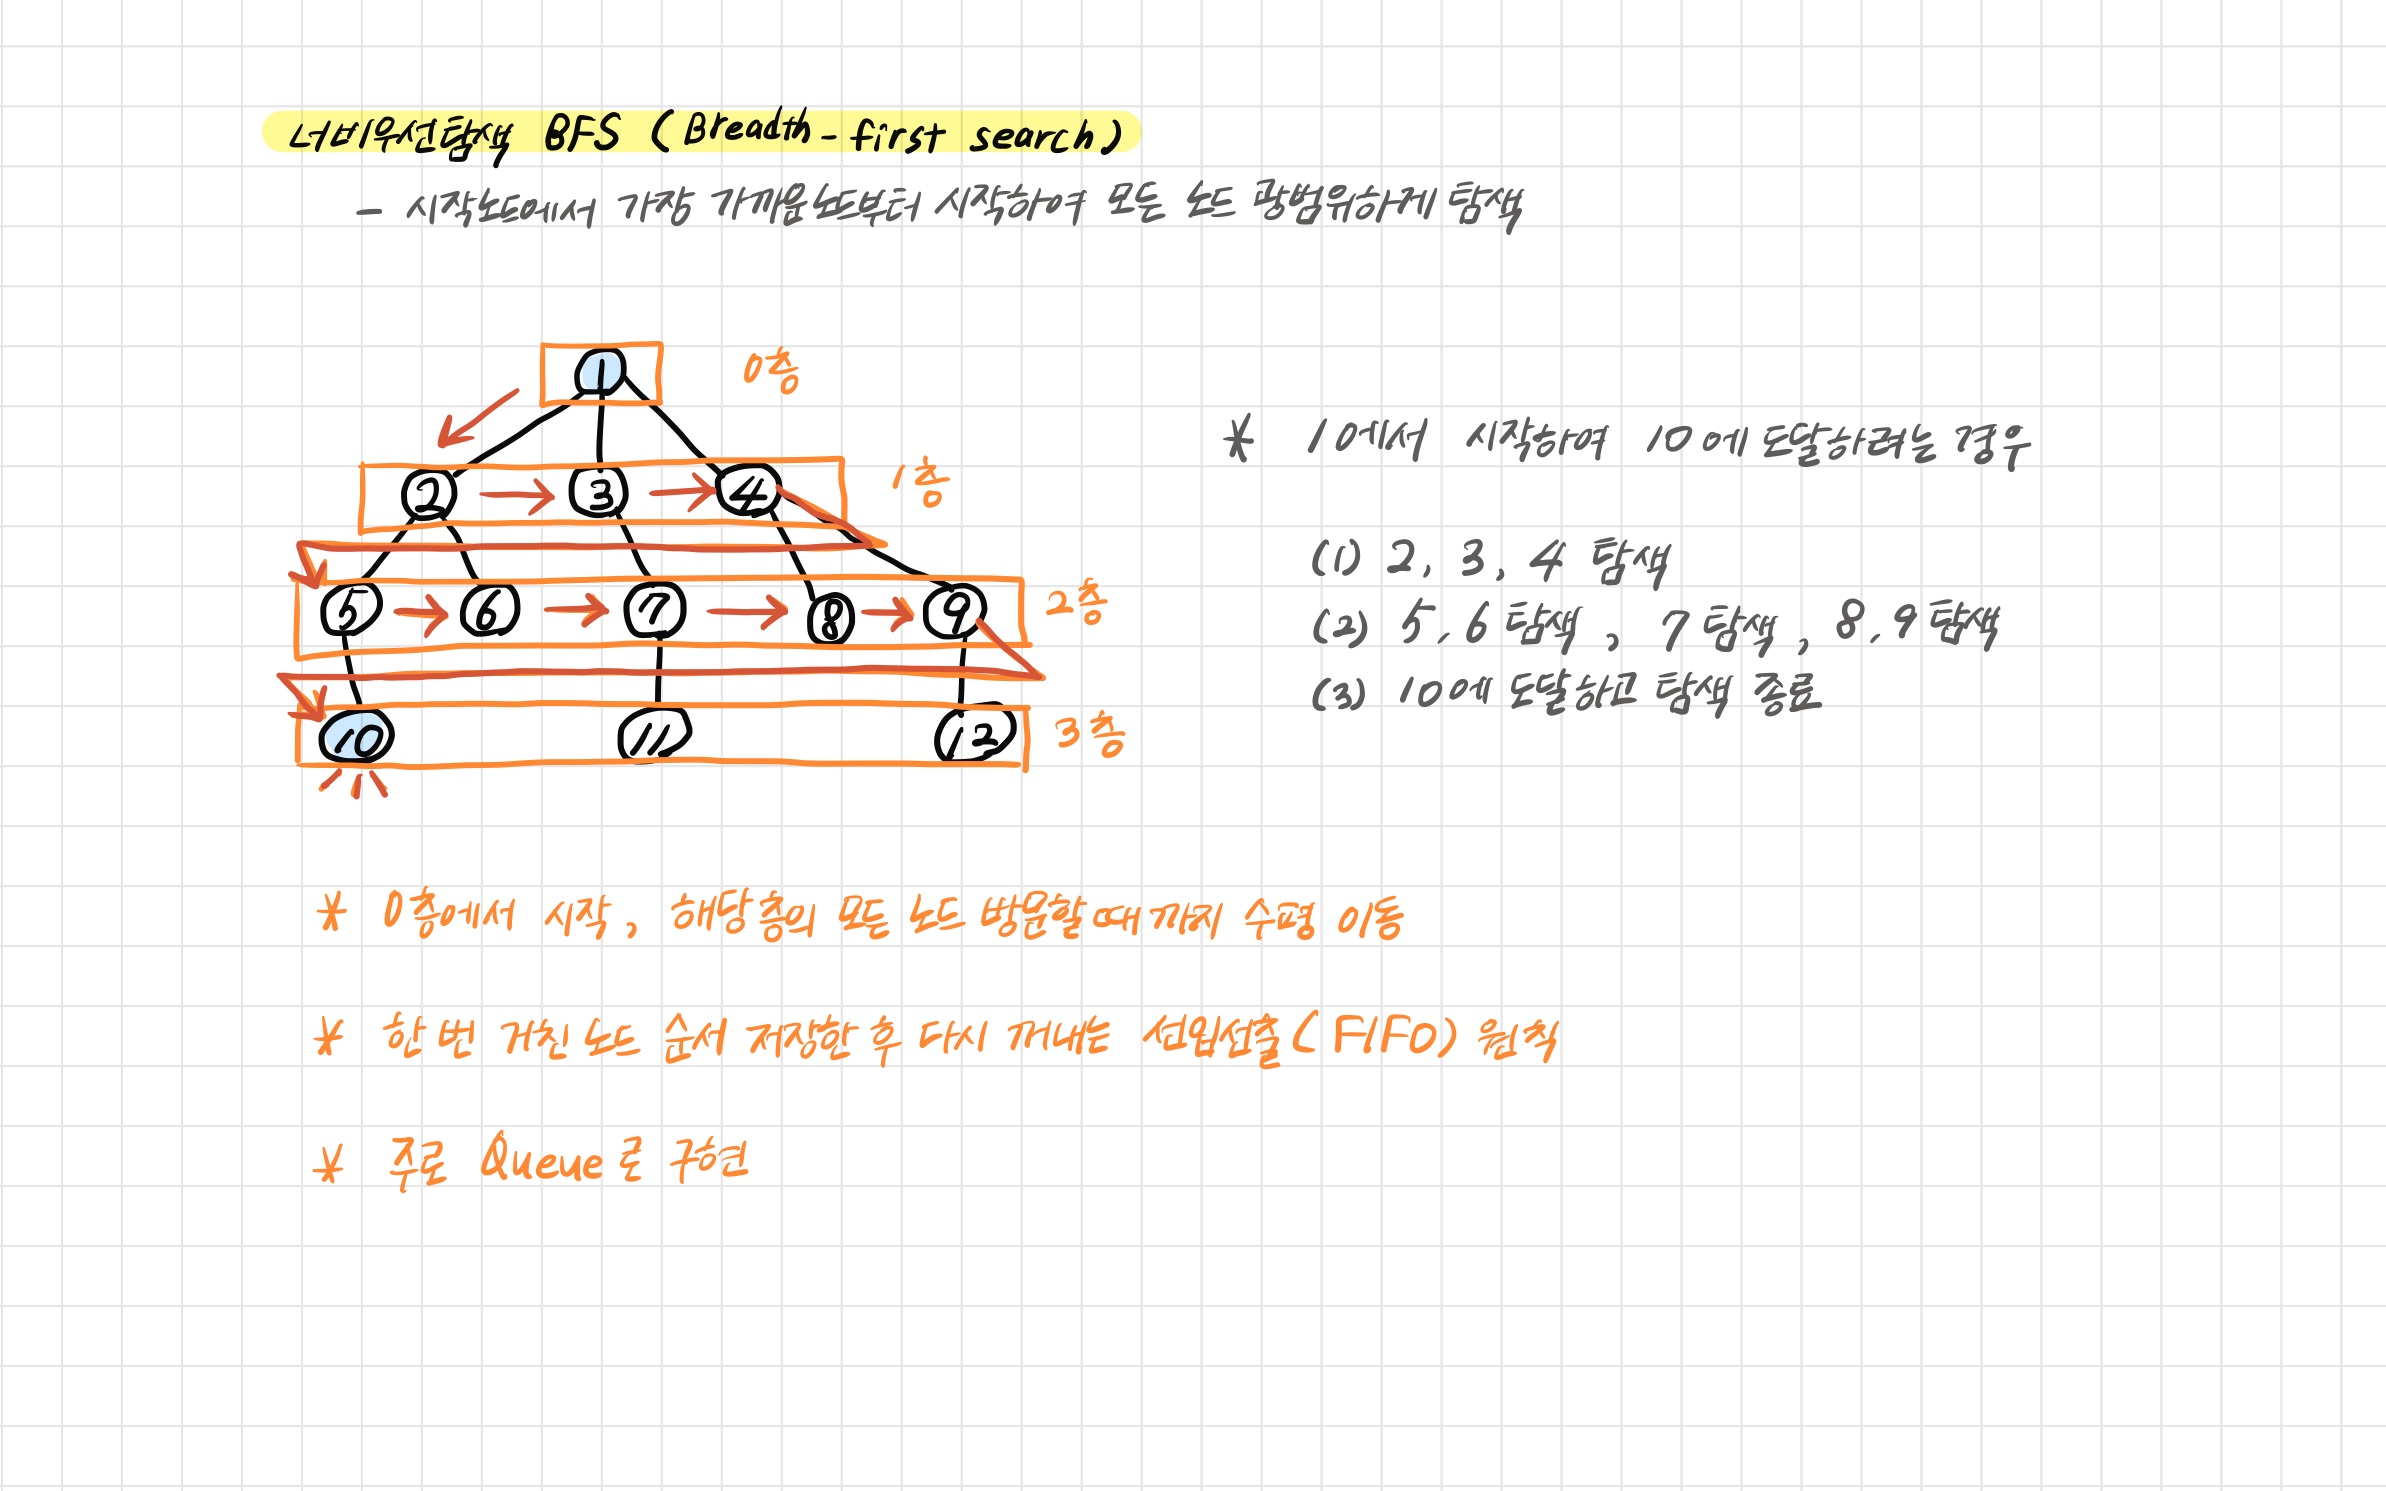 너비우선탐색 BFS (Breadth-first search)
- 시작노드에서 가장 가까운 노드부터 시작하여 모든 노드 광범위하게 탐색
1 0층
2 3 4 1층
5 6 7 8 9 2층
10 11 12 3층
* 1에서 시작하여 10에 도달하려는 경우
(1) 2, 3, 4 탐색
(2) 5, 6 탐색, 7 탐색, 8, 9 탐색
(3) 10에 도달하고 탐색 종료
* 0층에서 시작, 해당 층의 모든 노드 방문할때까지 수평 이동
* 한 번 거친 노드 순서 저장한 후 다시 꺼내는 선입선출 (FIFO) 원칙
* 주로 Queue로 구현